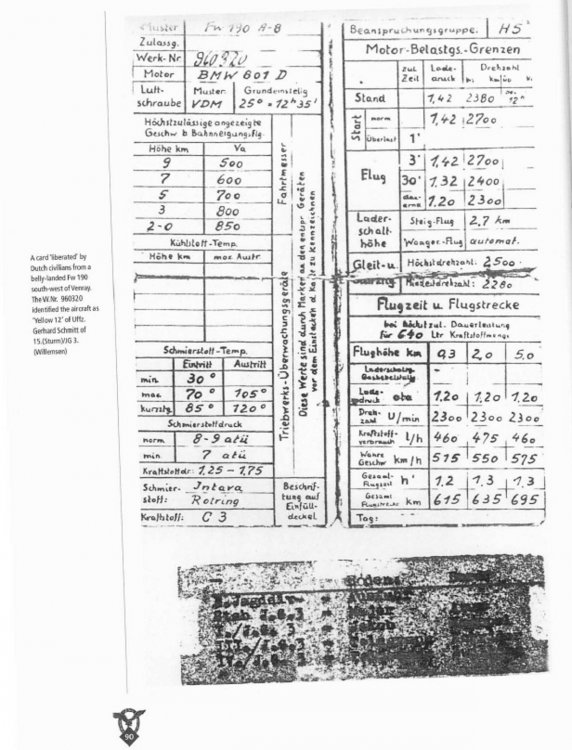 A card 'liberated' by
Dutch civilians from a
belly-landed Fw 190
south-west of Venray.
The W.Nr. 960320
identified the aircraft as
'Yellow 12' of Uffz.
Gerhard Schmitt of
15.(Sturm)/JG 3.
(Willemsen)
Muster Fw 190 A-8
Zulassg.
Werk-Nr 960320
Motor BMW 801 D
Luft-schraube Muster VDM Grundeinstellg 25° = 12ʰ 35'
Höchstzulässige angezeigte
Geschw b Bahnneigungsflg.
Höhe km Va
9 500
7 600
5 700
3 800
2-0 850
Kühlstoff-Temp.
Höhe km max Austr.
Schmierstoff-Temp.
Eintritt Austritt
min 30°
max 70° 105°
kurzztg 85° 120°
Schmierstoffdruck
norm 8-9 atü
min 7 atü
Kraftstoffdr. 1,25 - 1,75
Schmier- Intava
stoff: Rotring
Kraftstoff: C 3
Fahrtmesser
Triebwerks-Überwachungsgeräte
Diese Werte sind durch Marken an den entspr Geräten
vor dem Einstecken d. Karte zu kennzeichnen
Beschrif-
tung auf
Einfüll-
deckel
Beanspruchungsgruppe. H5
Motor-Belastgs.-Grenzen
zul. Zeit Lade-druck Drehzahl
Stand 1,42 2380 12ʰ
Start norm 1,42 2700
Überlast 1'
Flug 3' 1,42 2700
30' 1,32 2400
dauernd 1,20 2300
Lader- Steig-Flug 2,7 km
schalt-
höhe Waager.-Flug automat.
Gleit-u. Höchstdrehzahl: 2500
Sturzflg Mindestdrehzahl: 2280
Flugzeit u. Flugstrecke
bei höchstzul. Dauerleistung
für 640 Ltr Kraftstoffmenge
Flughöhe km 0,3 2,0 5,0
Laderschaltg. -
Lade-druck ata 1,20 1,20 1,20
Dreh-zahl U/min 2300 2300 2300
Kraftstoff-verbrauch l/h 460 475 460
Wahre Geschw km/h 515 550 575
Gesamt-Flugzeit h' 1,2 1,3 1,3
Gesamt Flugstrecke km 615 635 695
Tag:
90